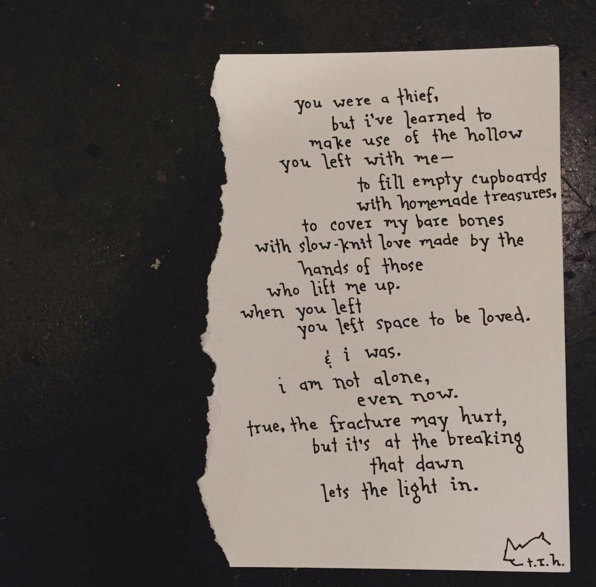 you were a thief,
but i've learned to
make use of the hollow
you left with me—
to fill empty cupboards
with homemade treasures,
to cover my bare bones
with slow-knit love made by the
hands of those
who lift me up.
when you left
you left space to be loved.
& i was.
i am not alone,
even now.
true, the fracture may hurt,
but it's at the breaking
that dawn
lets the light in.
t.r.h.